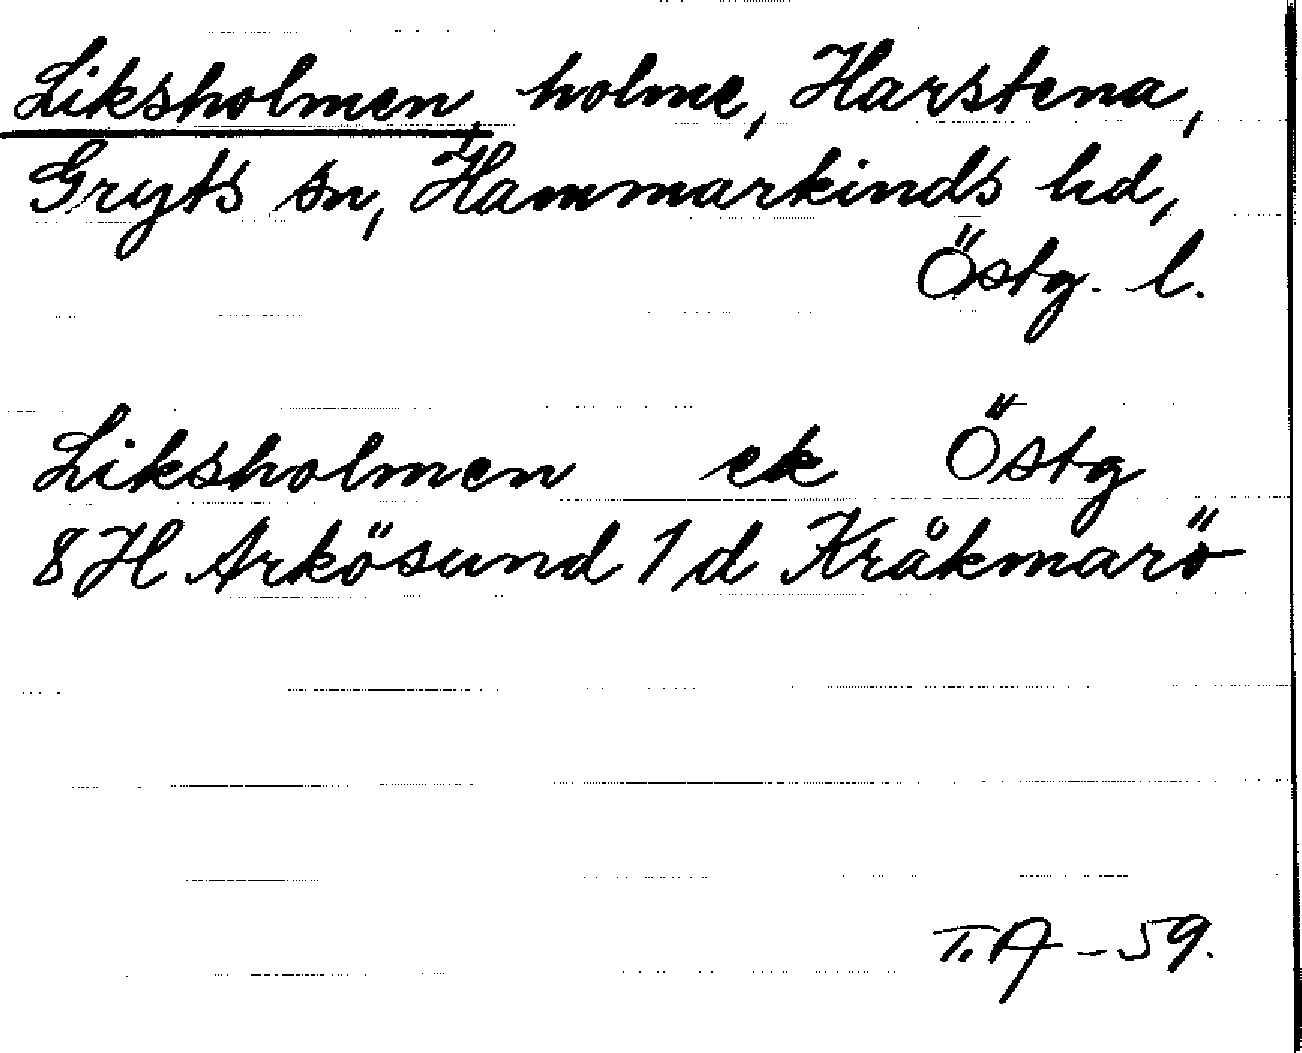 Liksholmen, holme, Harstena,
Gryts sn, Hammarkinds hd,
Östg. l.
Liksholmen ek Östg
8H Arkösund 1 d Kråkmarö
T.A -59.